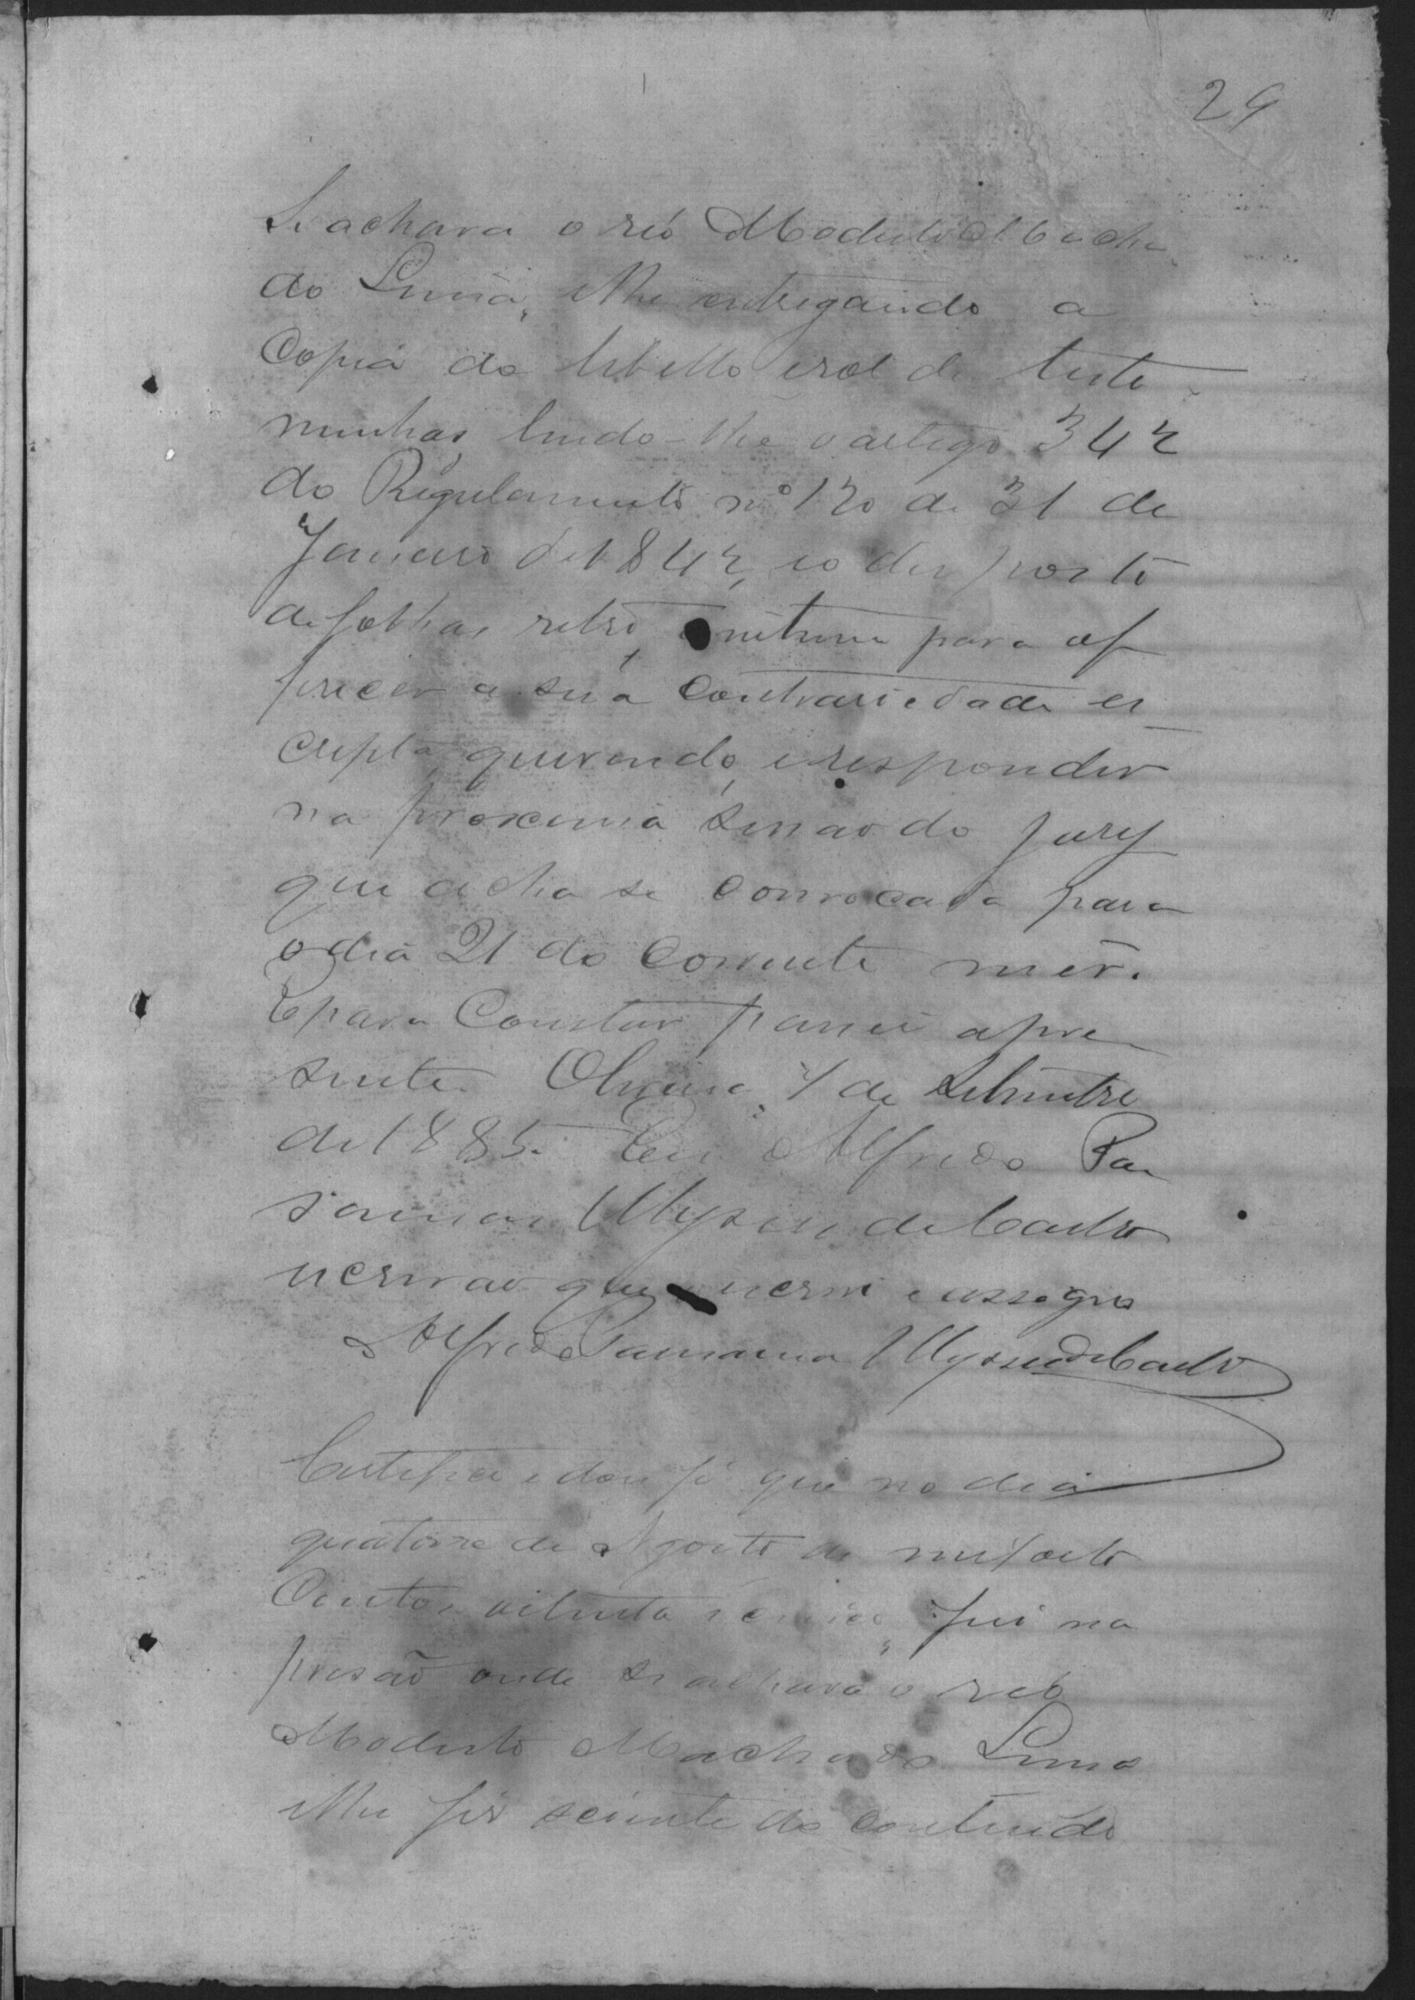 29
se achava o réo Modesto Macha
do Lima, e lhe entregando a
Copia do libello e rol de teste
munhas, lendo-lhe o artigo 342
do Regulamento nº 120 de 31 de
Janeiro de 1842, e o des porto
de folhas retro, e intimei para of
ferecer a sua contrariedade es
cripta querendo, e responder
na proxima sessão do Jury
que acha se convocada para
o dia 21 do corrente mez.
E para constar passei a pre
sente. 7 de Setembro
de 1885. Eu Alfredo
Ulysses de Castro
escrivão que escrevi e assigno
Alfredo Ulysses de Castro
Certifico e dou fé que no dia
quatorze de Agosto de mil oito
Centos oitenta e cinco, fui na
prisão onde se achava o réo
Modesto Machado Lima
e lhe fiz sciente do conteúdo